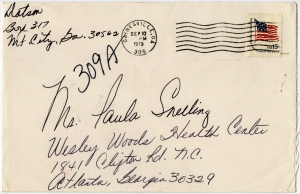 Dotson
Box 317
Mt City, Ga. 30562
GAINESVILLE, GA
SEP 10
PM
1979
305
309A
Ms. Paula Snelling
Wesley Woods Health Center
1841 Clifton Rd. N.E.
Atlanta, Georgia 30329